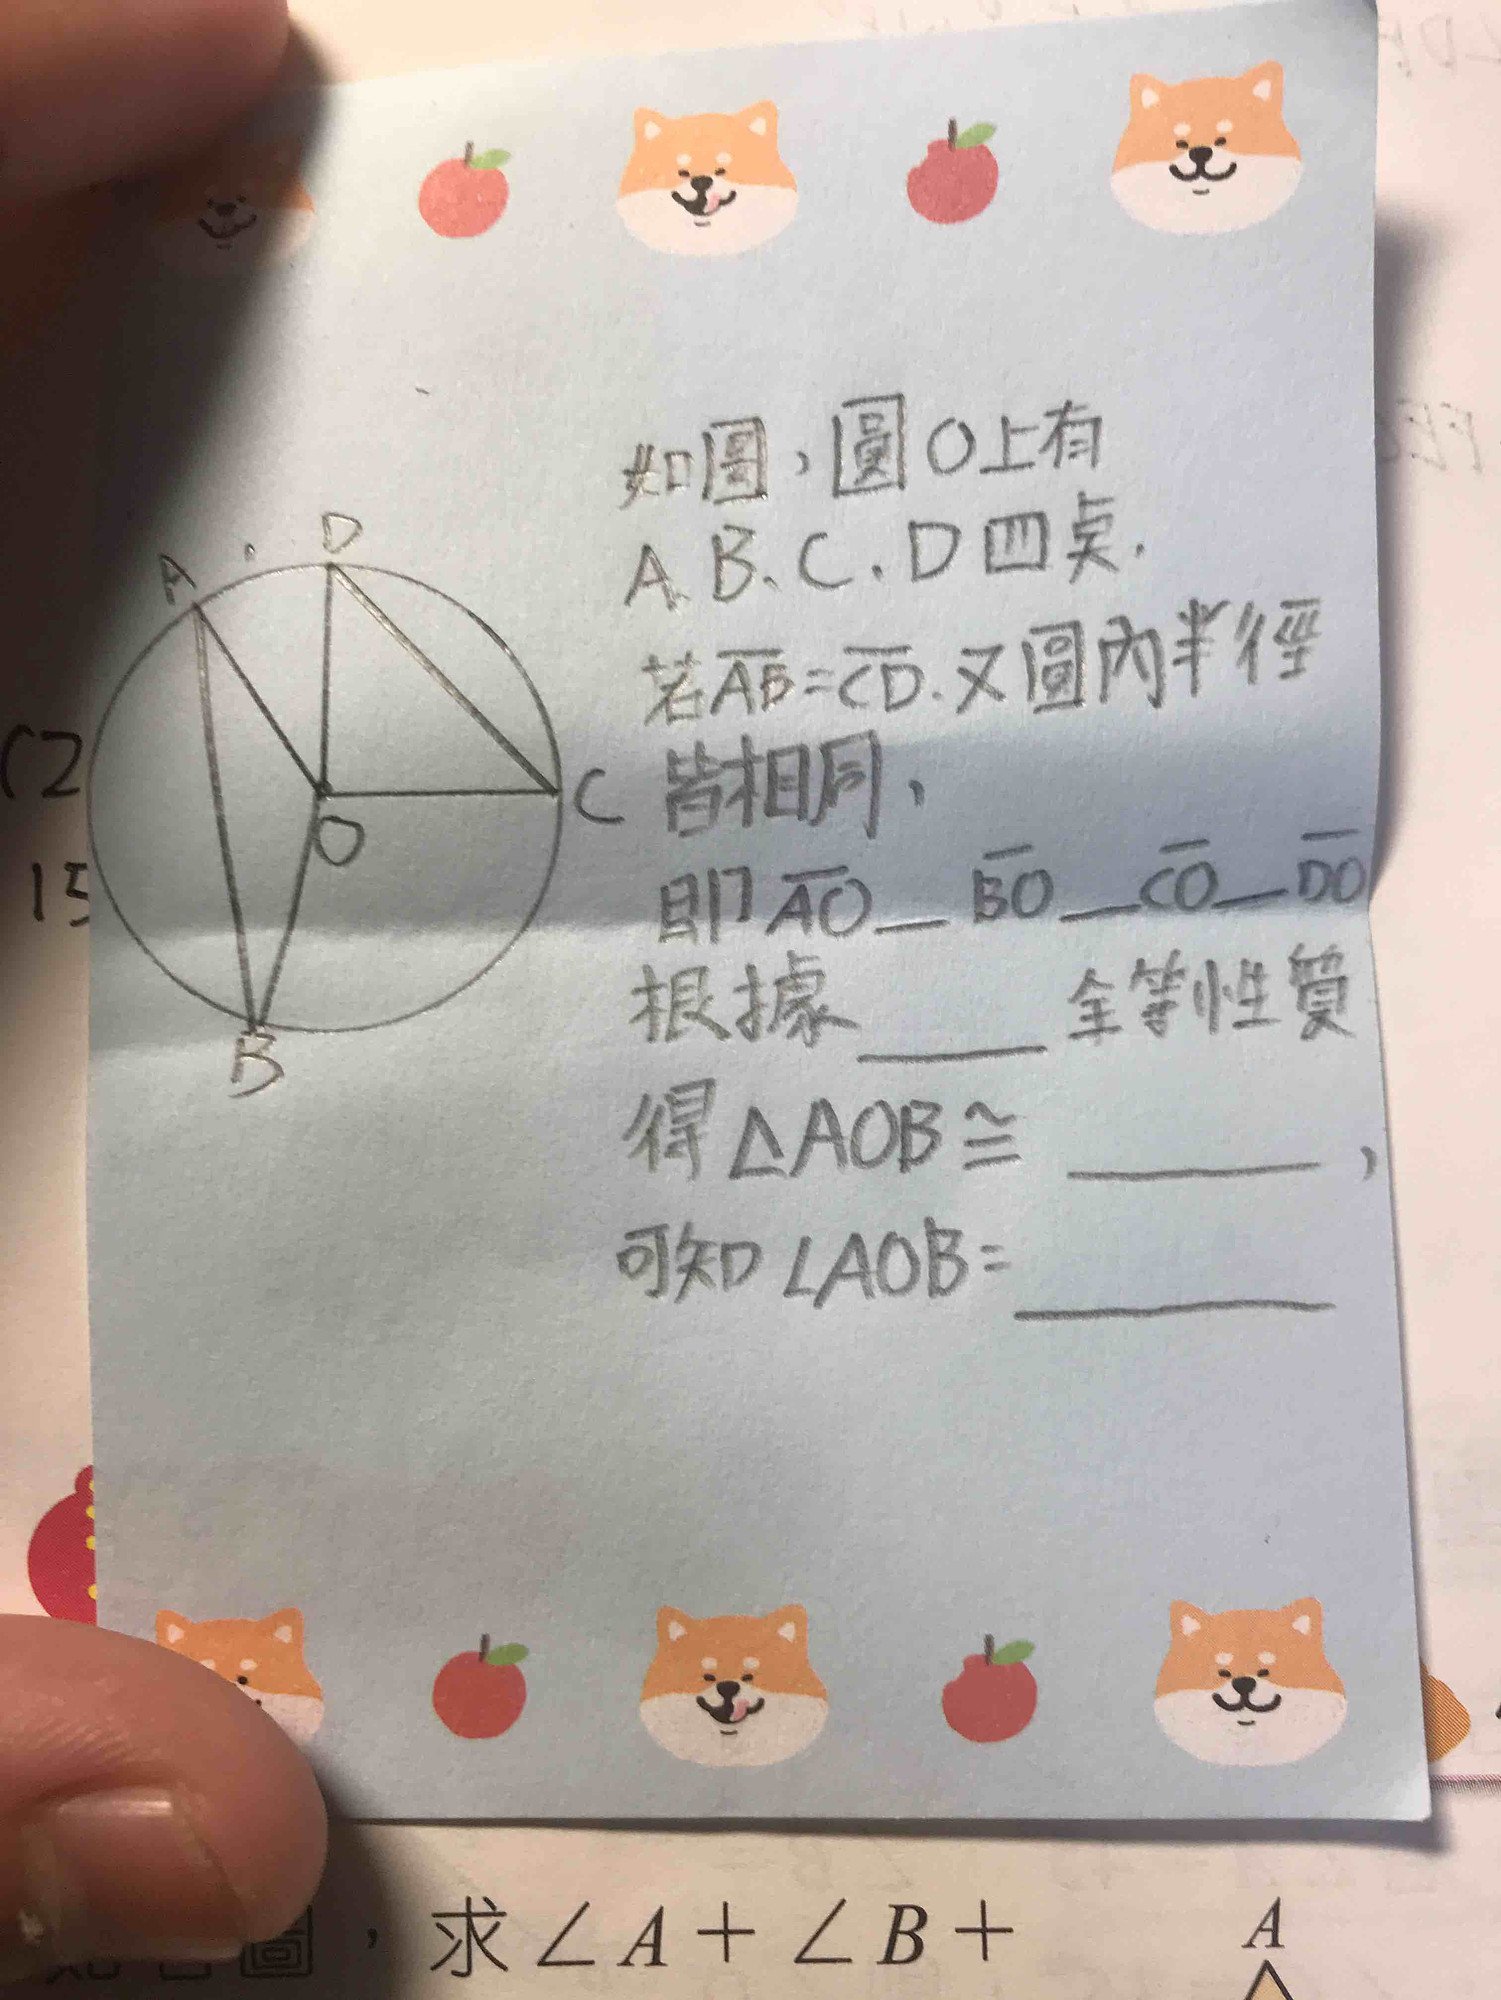 如圖，圓O上有
A、B、C、D四點.
若AB=CD.又圓內半徑
皆相同，
即AO_BO_CO_DO
根據____全等性質
得△AOB≅____，
可知∠AOB=____
A
D
O
C
B
(2
15
，求∠A+∠B+
A